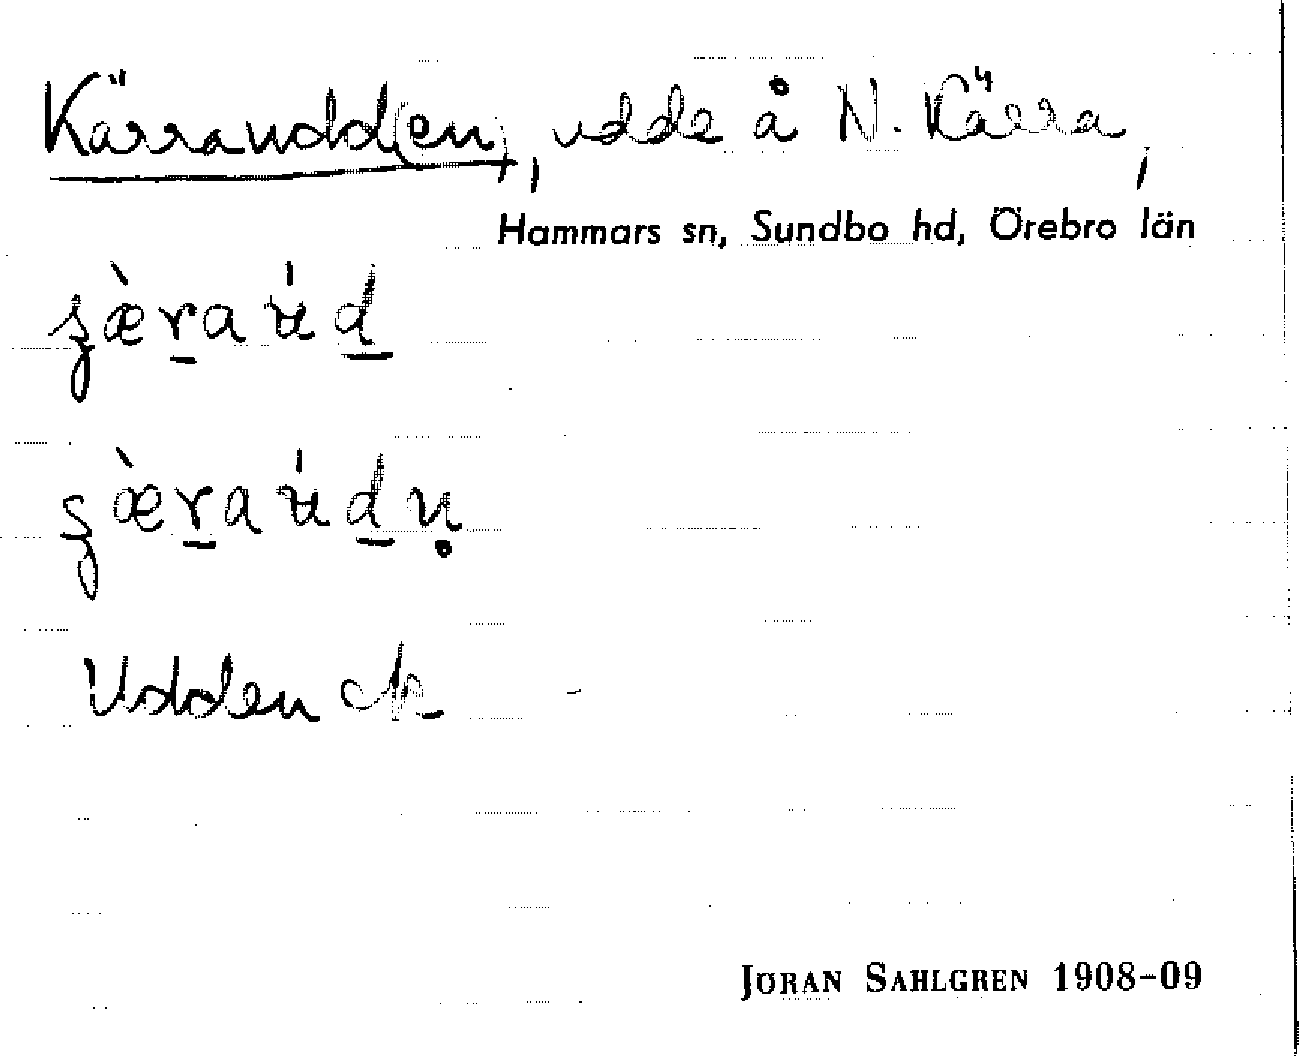 Kärraudd(en), udde å N. Kärra,
Hammars sn, Sundbo hd, Örebro län
Udden ck
JÖRAN SAHLGREN 1908-09